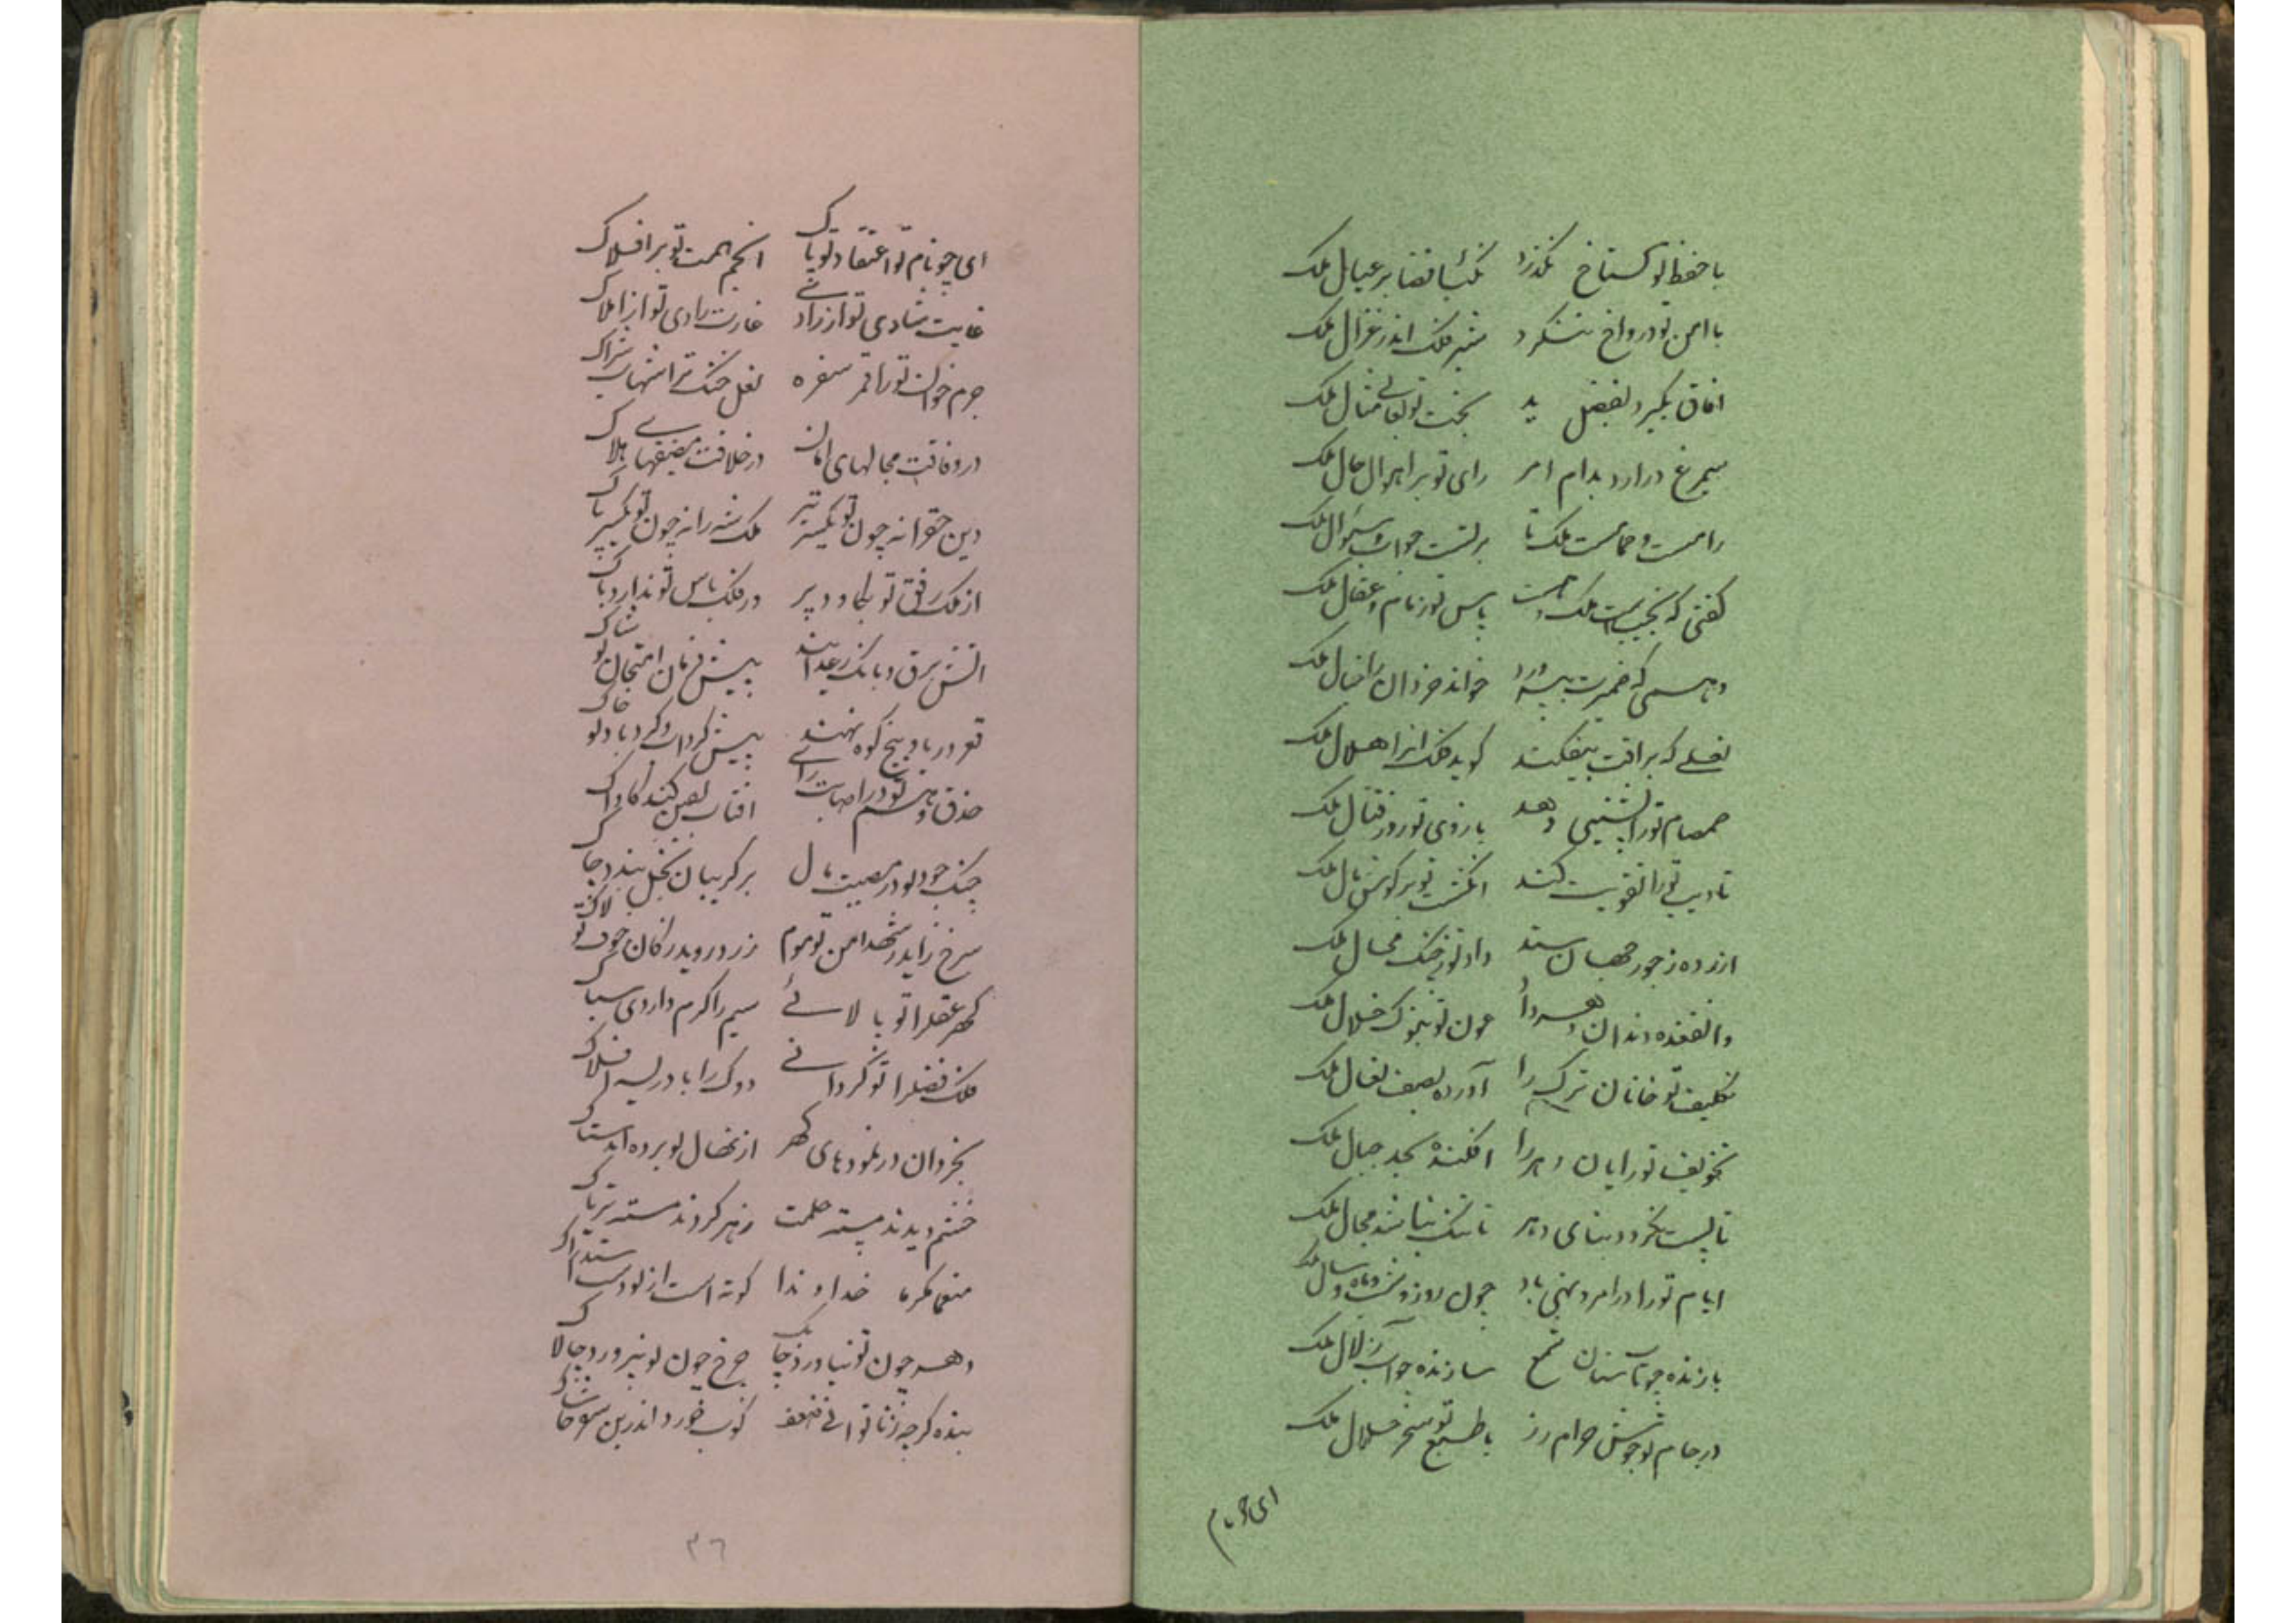 با حفظ تو گستاخ نگذرد نکبای فضا بر عیال ملک
با امن تو درواخ ننگرد شیر فلک اندر غزال ملک
افاق بگیرد بفضل ید بخت تو بقای بی مثال ملک
سیمرغ درارد بدام امر رای تو بر اهوال حال ملک
رامست و حمامست ملک تا برتست جواب و سوال ملک
گفتی که نجیبیست ملک و هست پاس تو زمام و عقال ملک
وهمی که ضمیرت بپرورد خواند خرد آن را خیال ملک
نعلی که براقت بیفکند گوید فلک انرا هلال ملک
صمصام تو را پشتیی دهد بازوی تو روز قتال ملک
تادیب تو را تقویت کند انگشت تو بر گوش مال ملک
ازرده ز جور جهان ستد داد تو ز چنگ محال ملک
والفغده دندان دهر را عون تو بنوک خلال ملک
تکلیف تو خانان ترک را آورده بصف نعال ملک
تخویف تو رایان دهر را افکنده بحد جبال ملک
تا پست نگردد بنای دهر تا تنگ نباشد مجال ملک
ایام تو را در امر و نهی باد چون روز و شب و ماه و سال ملک
بازنده چو تاب سنان شمع سازنده چو آب زلال ملک
در جام تو جوش حرام رز با طبع تو سحر حلال ملک
ای چو نام
ای چو نام تو اعتقاد تو پاک انجم همت تو بر افلاک
غایت شادی تو از زادی غارت رادی تو از املاک
جرم خوان تو را قمر سفره نعل خنگ ترا شهاب شراک
در وفاقت مجالهای امان در خلافت مضیقهای هلاک
دین حق را نه چون تو یکسر تیر ملک شه را نه چون تو یکسر پاک
از ملک رفق تو نکاود پر در فلک باس تو ندارد باک
اتش برق و بانگ رعد ایند پیش فرمان امتحان تو شاک
قعر دریا و بیخ کوه نهند پیش گرداب و گرد باد تو خاک
حذق و فهم تو در اصابت رای افتاب یقین کند کاواک
چنگ جود تو در مصیبت مال بر گریبان بخل بندد چاک
سرخ زاید ز شهد امن تو موم زرد روید ز کان خوف تو لاک
گهر عقل را تو بالائی سیم را کرم داردی سباک
فلک فضل را تو گردانی دوک را باد ریسه افلاک
بخردان در نمودهای گهر از نهال تو برده اند ستاک
خشم دیدند پسته حلمت زهر کردند مسته تریاک
منعما مکرما خداوندا کوته است از تو دست استدراک
دهر چون تو نیاورد چابک چرخ چون تو نپرورد چالاک
بنده گرچه ز ناتوانی ضعف کوب خورد اندرین سفر خاشاک
۳۶